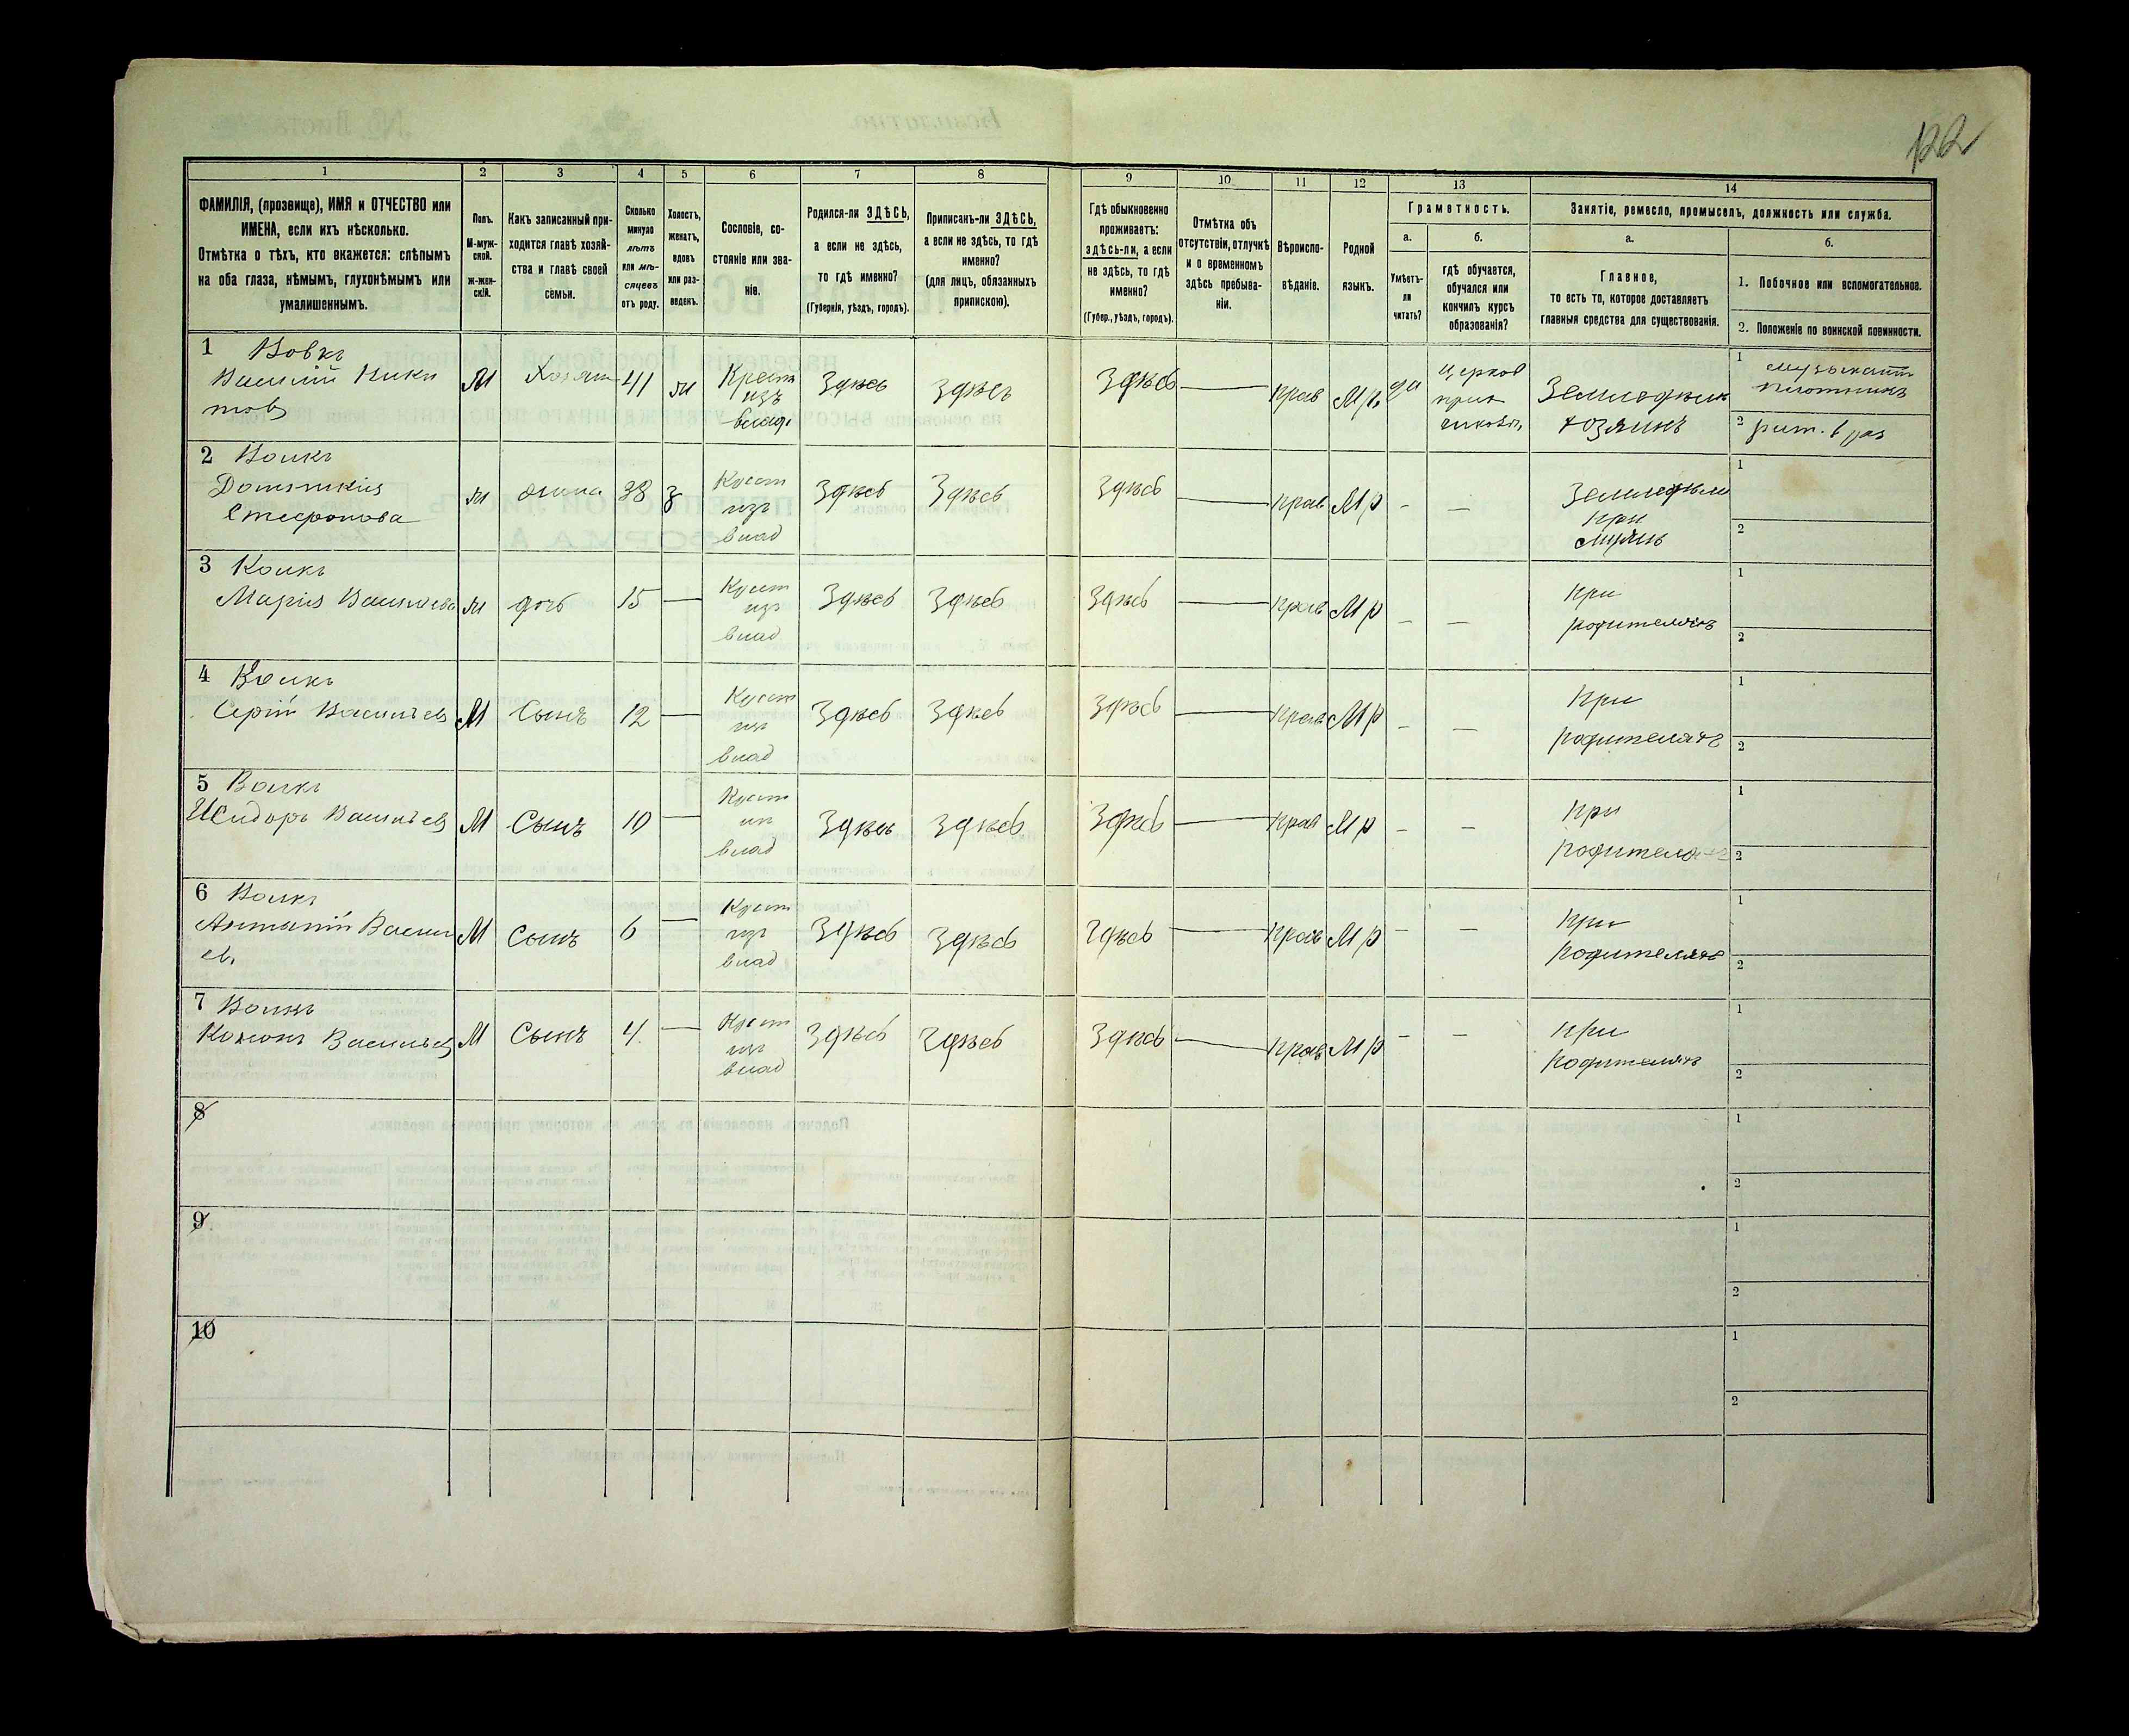 122
1
2
3
4
5
6
7
8
9
10
11
12
13
14
ФАМИЛІЯ, (прозвище), ИМЯ и ОТЧЕСТВО или
ИМЕНА, если ихъ нѣсколько.
Отмѣтка о тѣхъ, кто окажется: слѣпымъ
на оба глаза, нѣмымъ, глухонѣмымъ или
умалишеннымъ.
Полъ.
М-муж-
ской.
ж-жен-
скій.
Какъ записанный при-
ходится главѣ хозяй-
ства и главѣ своей
семьи.
Сколько
минуло
лѣтъ
или мѣ-
сяцевъ
отъ роду.
Холостъ,
женатъ,
вдовъ
или раз-
веденъ.
Сословіе, со-
стояніе или зва-
ніе.
Родился-ли ЗДѢСЬ,
а если не здѣсь,
то гдѣ именно?
(Губернія, уѣздъ, городъ).
Приписанъ-ли ЗДѢСЬ,
а если не здѣсь, то гдѣ
именно?
(для лицъ, обязанныхъ
припискою).
Гдѣ обыкновенно
проживаетъ:
здѣсь-ли, а если
не здѣсь, то гдѣ
именно?
(Губер., уѣздъ, городъ).
Отмѣтка объ
отсутствіи, отлучкѣ
и о временномъ
здѣсь пребыва-
ніи.
Вѣроиспо-
вѣданіе.
Родной
языкъ.
Грамотность.
а.
Умѣетъ-
ли
читать?
б.
гдѣ обучается,
обучался или
кончилъ курсъ
образованія?
Занятіе, ремесло, промыселъ, должность или служба.
а.
Главное,
то есть то, которое доставляетъ
главныя средства для существованія.
б.
1. Побочное или вспомогательное.
2. Положеніе по воинской повинности.
1 Вовкъ
Василій Ники
товъ
М
Хозяин
41
Крест
изъ
влад.
Здѣсь
Здѣсь
Здѣсь
—
прав
М р.
да
Земледѣли
хозяинъ
1
2
2 Волкъ
Стефанова
жена
38
Крест
изъ
влад
Здѣсь
Здѣсь
Здѣсь
—
прав
М р
—
—
Земледѣли
при
1
2
3
Марія Васильева
дочь
15
—
Крест
изъ
влад
Здѣсь
Здѣсь
Здѣсь
—
прав
М р
—
—
при
родителяхъ
1
2
4 Волкъ
Василіев
М
Сынъ
12
—
Крест
изъ
влад
Здѣсь
Здѣсь
Здѣсь
—
прав
М р
—
—
При
родителяхъ
1
2
5 Волкъ
Исидоръ Василіев
М
Сынъ
10
—
Крест
из
влад
Здѣсь
Здѣсь
Здѣсь
—
прав
М р
—
—
при
родителяхъ
1
2
6 Волкъ
Василі
ев.
М
сынъ
6
—
Крест
изъ
влад
Здѣсь
Здѣсь
Здѣсь
—
прав
М р
—
—
при
родителяхъ
1
2
7 Волкъ
Васильев
М
Сынъ
4
—
Крест
изъ
влад
Здѣсь
Здѣсь
Здѣсь
—
прав
М р
—
—
при
родителяхъ
1
2
8
1
2
9
1
2
10
1
2